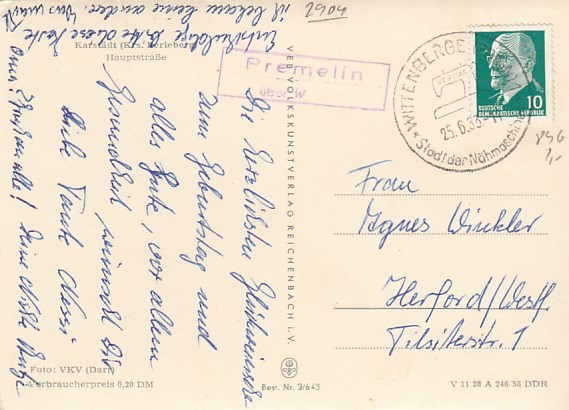 Entschuldige bitte diese Karte
ich bekam keine andere.
2904
Karstädt (Krs. Perleberg)
Hauptstraße
Die herzlichsten Glückwünsche
zum Geburtstag und
alles Gute, vor allem
Gesundheit wünscht Dir
Deine Tante
Grüße an alle! Deine
Foto: VKV (Darr)
Verbraucherpreis 0,20 DM
VEB VOLKSKUNSTVERLAG REICHENBACH i. V.
Best. Nr. 2/643
Premelin
über W
WITTENBERGE
25.6.63
* Stadt der Nähmaschine
DEUTSCHE
DEMOKRATISCHE REPUBLIK
10
846
1,-
Frau
Agnes Winkler
Herford/Westf.
Tilsiterstr. 1
V 11 28 A 246/58 DDR